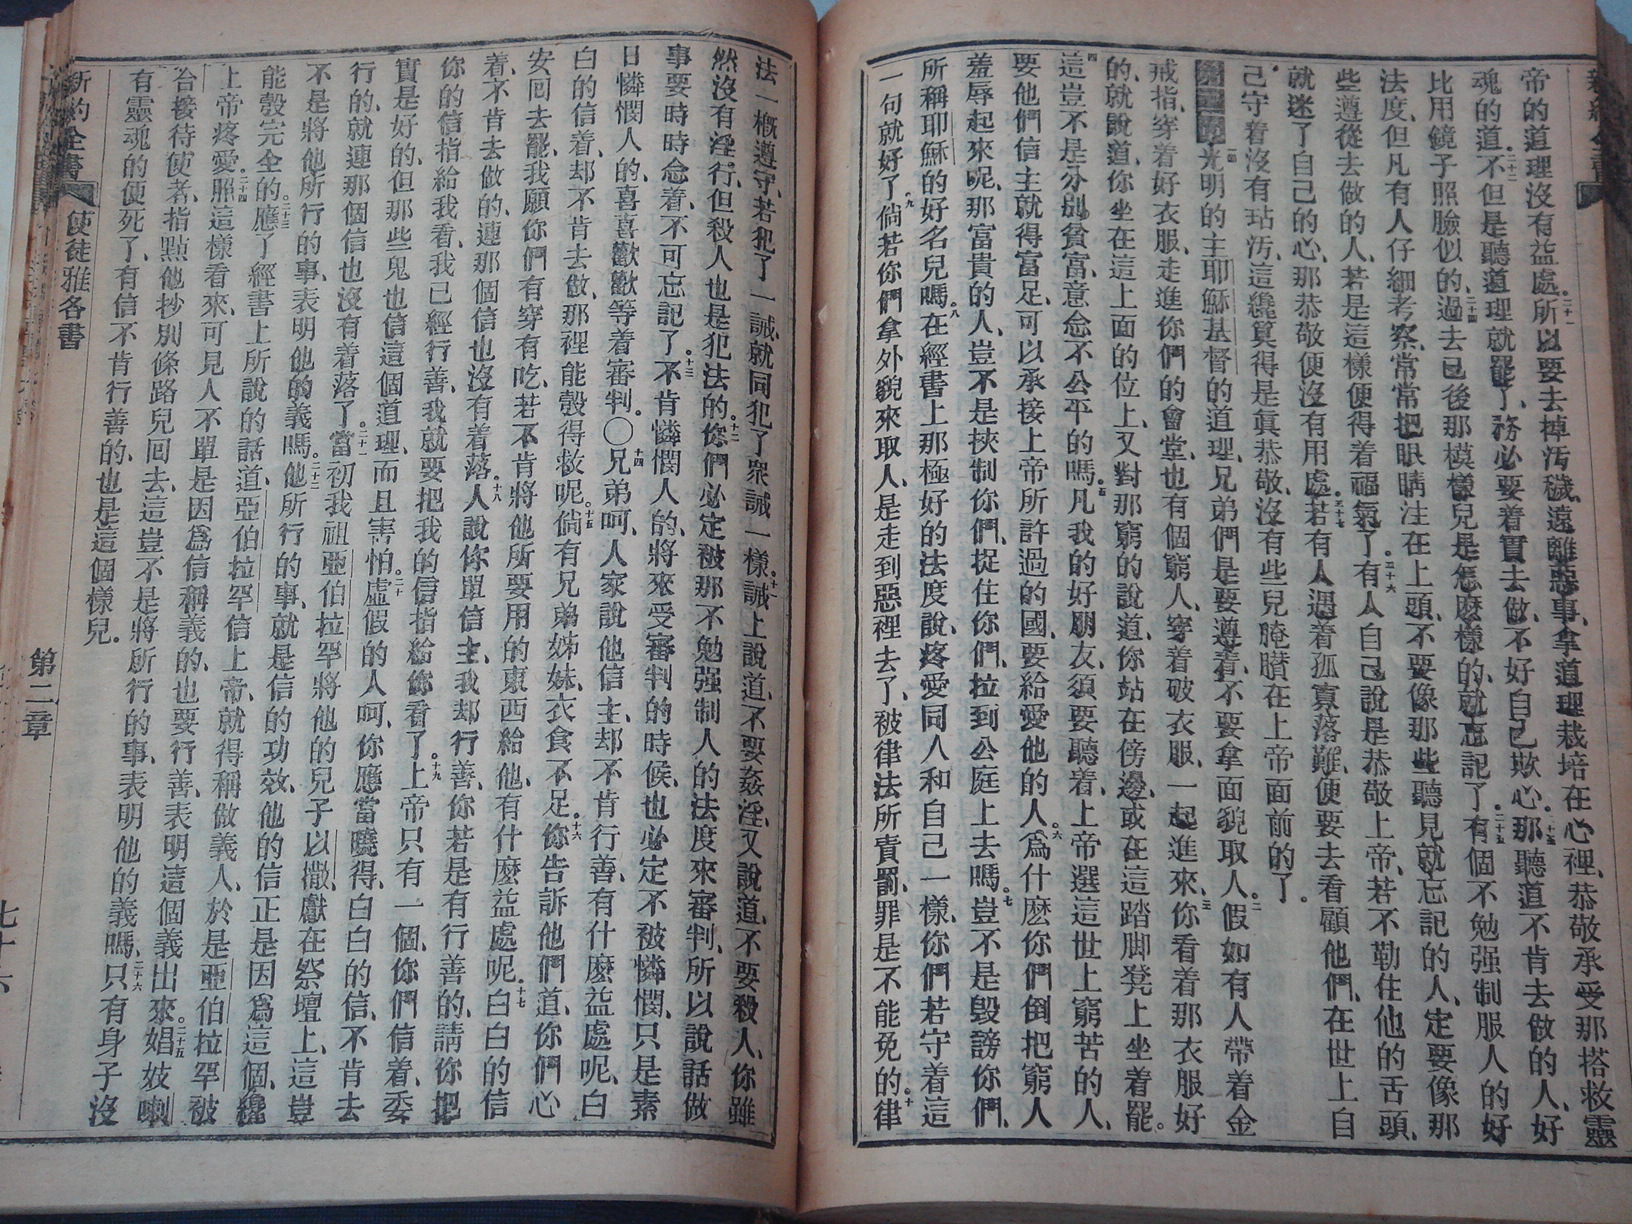 帝的道理沒有益處。二十一所以要去掉汚穢、遠離惡事、拿道理栽培在心裡、恭敬承受那搭救靈
魂的道、二十二不但是聽道理就罷了、務必要着實去做、不好自己欺心。二十三那聽道不肯去做的人、好
比用鏡子照臉似的、二十四過去已後那模樣兒是怎麼樣的、就忘記了。二十五有個不勉强制服人的好
法度、但凡有人仔細考察、常常把眼睛注在上頭、不要像那些聽見就忘記的人、定要像那
些遵從去做的人、若是這樣便得着福氣了。二十六有人自己說是恭敬上帝、若不勒住他的舌頭、
就迷了自己的心、那恭敬便沒有用處。二十七若有人遇着孤寡落難、便要去看顧他們、在世上自
己守着沒有玷汚、這纔算得是眞恭敬、沒有些兒腌臢在上帝面前的了。
第二章一光明的主耶穌基督的道理、兄弟們是要遵着、不要拿面貌取人、二假如有人帶着金
戒指、穿着好衣服、走進你們的會堂、也有個窮人、穿着破衣服、一起進來、三你看着那衣服好
的、就說道、你坐在這上面的位上、又對那窮的說道、你站在傍邊、或在這踏脚凳上坐着罷。
四這豈不是分別貧富、意念不公平的嗎。五凡我的好朋友、須要聽着、上帝選這世上窮苦的人、
要他們信主就得富足、可以承接上帝所許過的國、要給愛他的人。六爲什麽你們倒把窮人
羞辱起來呢、那富貴的人、豈不是挾制你們、捉住你們、拉到公庭上去嗎。七豈不是毀謗你們、
所稱耶穌的好名兒嗎。八在經書上那極好的法度、說、疼愛同人和自己一樣、你們若守着這
一句就好了。九倘若你們拿外貌來取人、是走到惡裡去了、被律法所責罰、罪是不能免的。十律
法一槪遵守、若犯了一誡、就同犯了衆誡一樣。十一誡上說道、不要姦淫、又說道、不要殺人、你雖
然沒有淫行、但殺人也是犯法的。十二你們必定被那不勉强制人的法度來審判、所以說話做
事要時時念着、不可忘記了。十三不肯憐憫人的、將來受審判的時候、也必定不被憐憫、只是素
日憐憫人的、喜喜歡歡等着審判。〇十四兄弟呵、人家說他信主、却不肯行善、有什麽益處呢、白
白的信着、却不肯去做、那裡能彀得救呢。十五倘有兄弟姊妹、衣食不足、十六你告訴他們道、你們心
安回去罷、我願你們有穿有吃、若不肯將他所要用的東西給他、有什麽益處呢。十七白白的信
着、不肯去做的、連那個信也沒有着落。十八人說你單信主、我却行善、你若是有行善的、請你把
你的信指給我看、我已經行善、我就要把我的信指給你看了。十九上帝只有一個、你們信着、委
實是好的、但那些鬼也信這個道理、而且害怕。二十虛假的人呵、你應當曉得、白白的信、不肯去
行的、就連那個信也沒有着落了。二十一當初我祖亞伯拉罕將他的兒子以撒、獻在祭壇上、這豈
不是將他所行的事、表明他的義嗎。二十二他所行的事、就是信的功效、他的信正是因爲這個、纔
能彀完全的。二十三應了經書上所說的話道、亞伯拉罕信上帝、就得稱做義人、於是亞伯拉罕被
上帝疼愛。二十四照這樣看來、可見人不單是因爲信稱義的、也要行善、表明這個義出來。二十五娼妓喇
合接待使者、指點他抄別條路兒回去、這豈不是將所行的事、表明他的義嗎。二十六只有身子沒
有靈魂的便死了、有信不肯行善的、也是這個樣兒。
新約全書 使徒雅各書 第二章 七十六